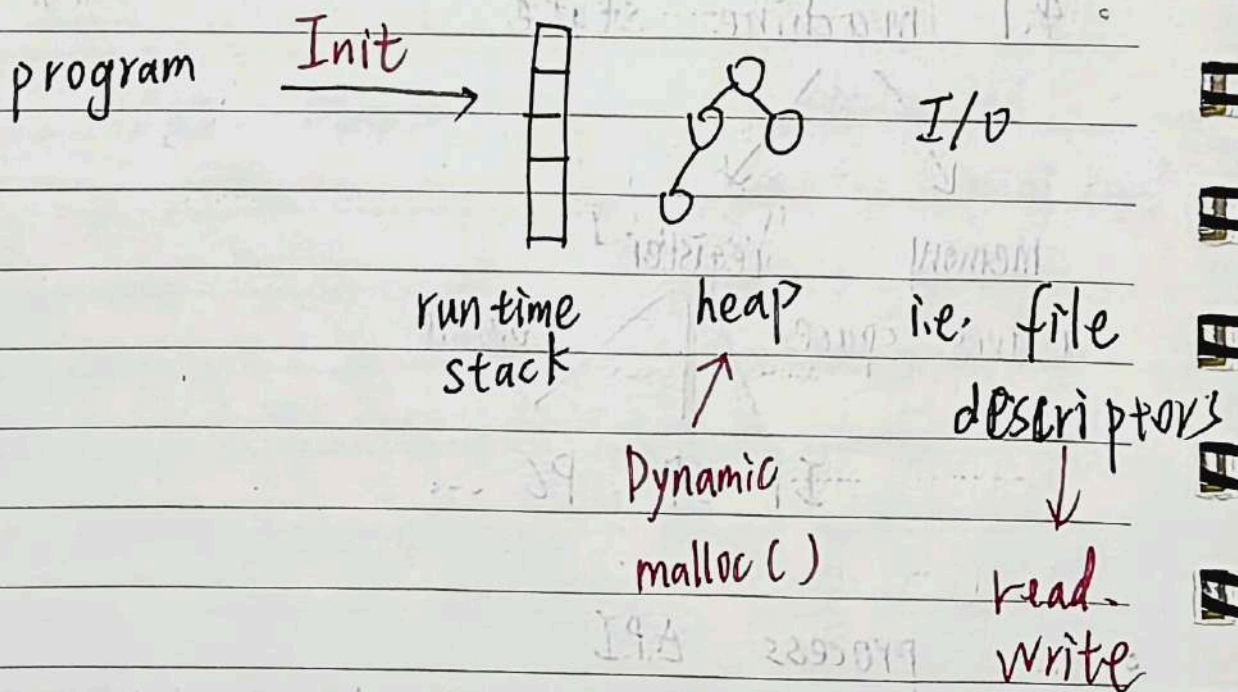 program
Init
I/O
run time
stack
heap
i.e. file
descriptors
Dynamic
malloc ( )
read.
write